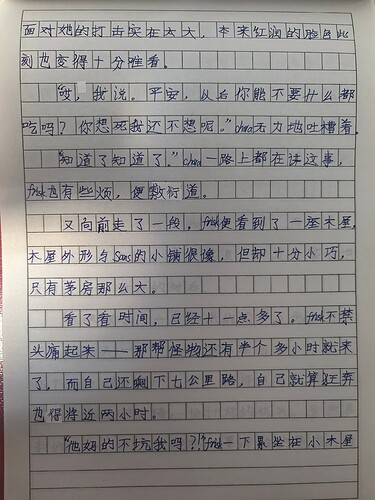 面对她的打击实在太大，本来红润的脸色此
刻也变得十分难看。
“哎，我说。平安，从后你能不要什么都
吃吗？你想死我还不想呢。”chara无力地吐槽着。
“知道了知道了。”chara一路上都在讲这事，
frisk也有些烦，便敷衍道。
又向前走了一段，frisk便看到了一座木屋，
木屋外形与Sans的小铺很像，但却十分小巧，
只有茅房那么大。
看了看时间，已经十一点多了。frisk不禁
头痛起来——那帮怪物还有半个多小时就来
了。而自己还剩下七公里路，自己就算狂奔
也得将近两小时。
“他妈的不坑我吗？！”frisk一下累坐在小木屋